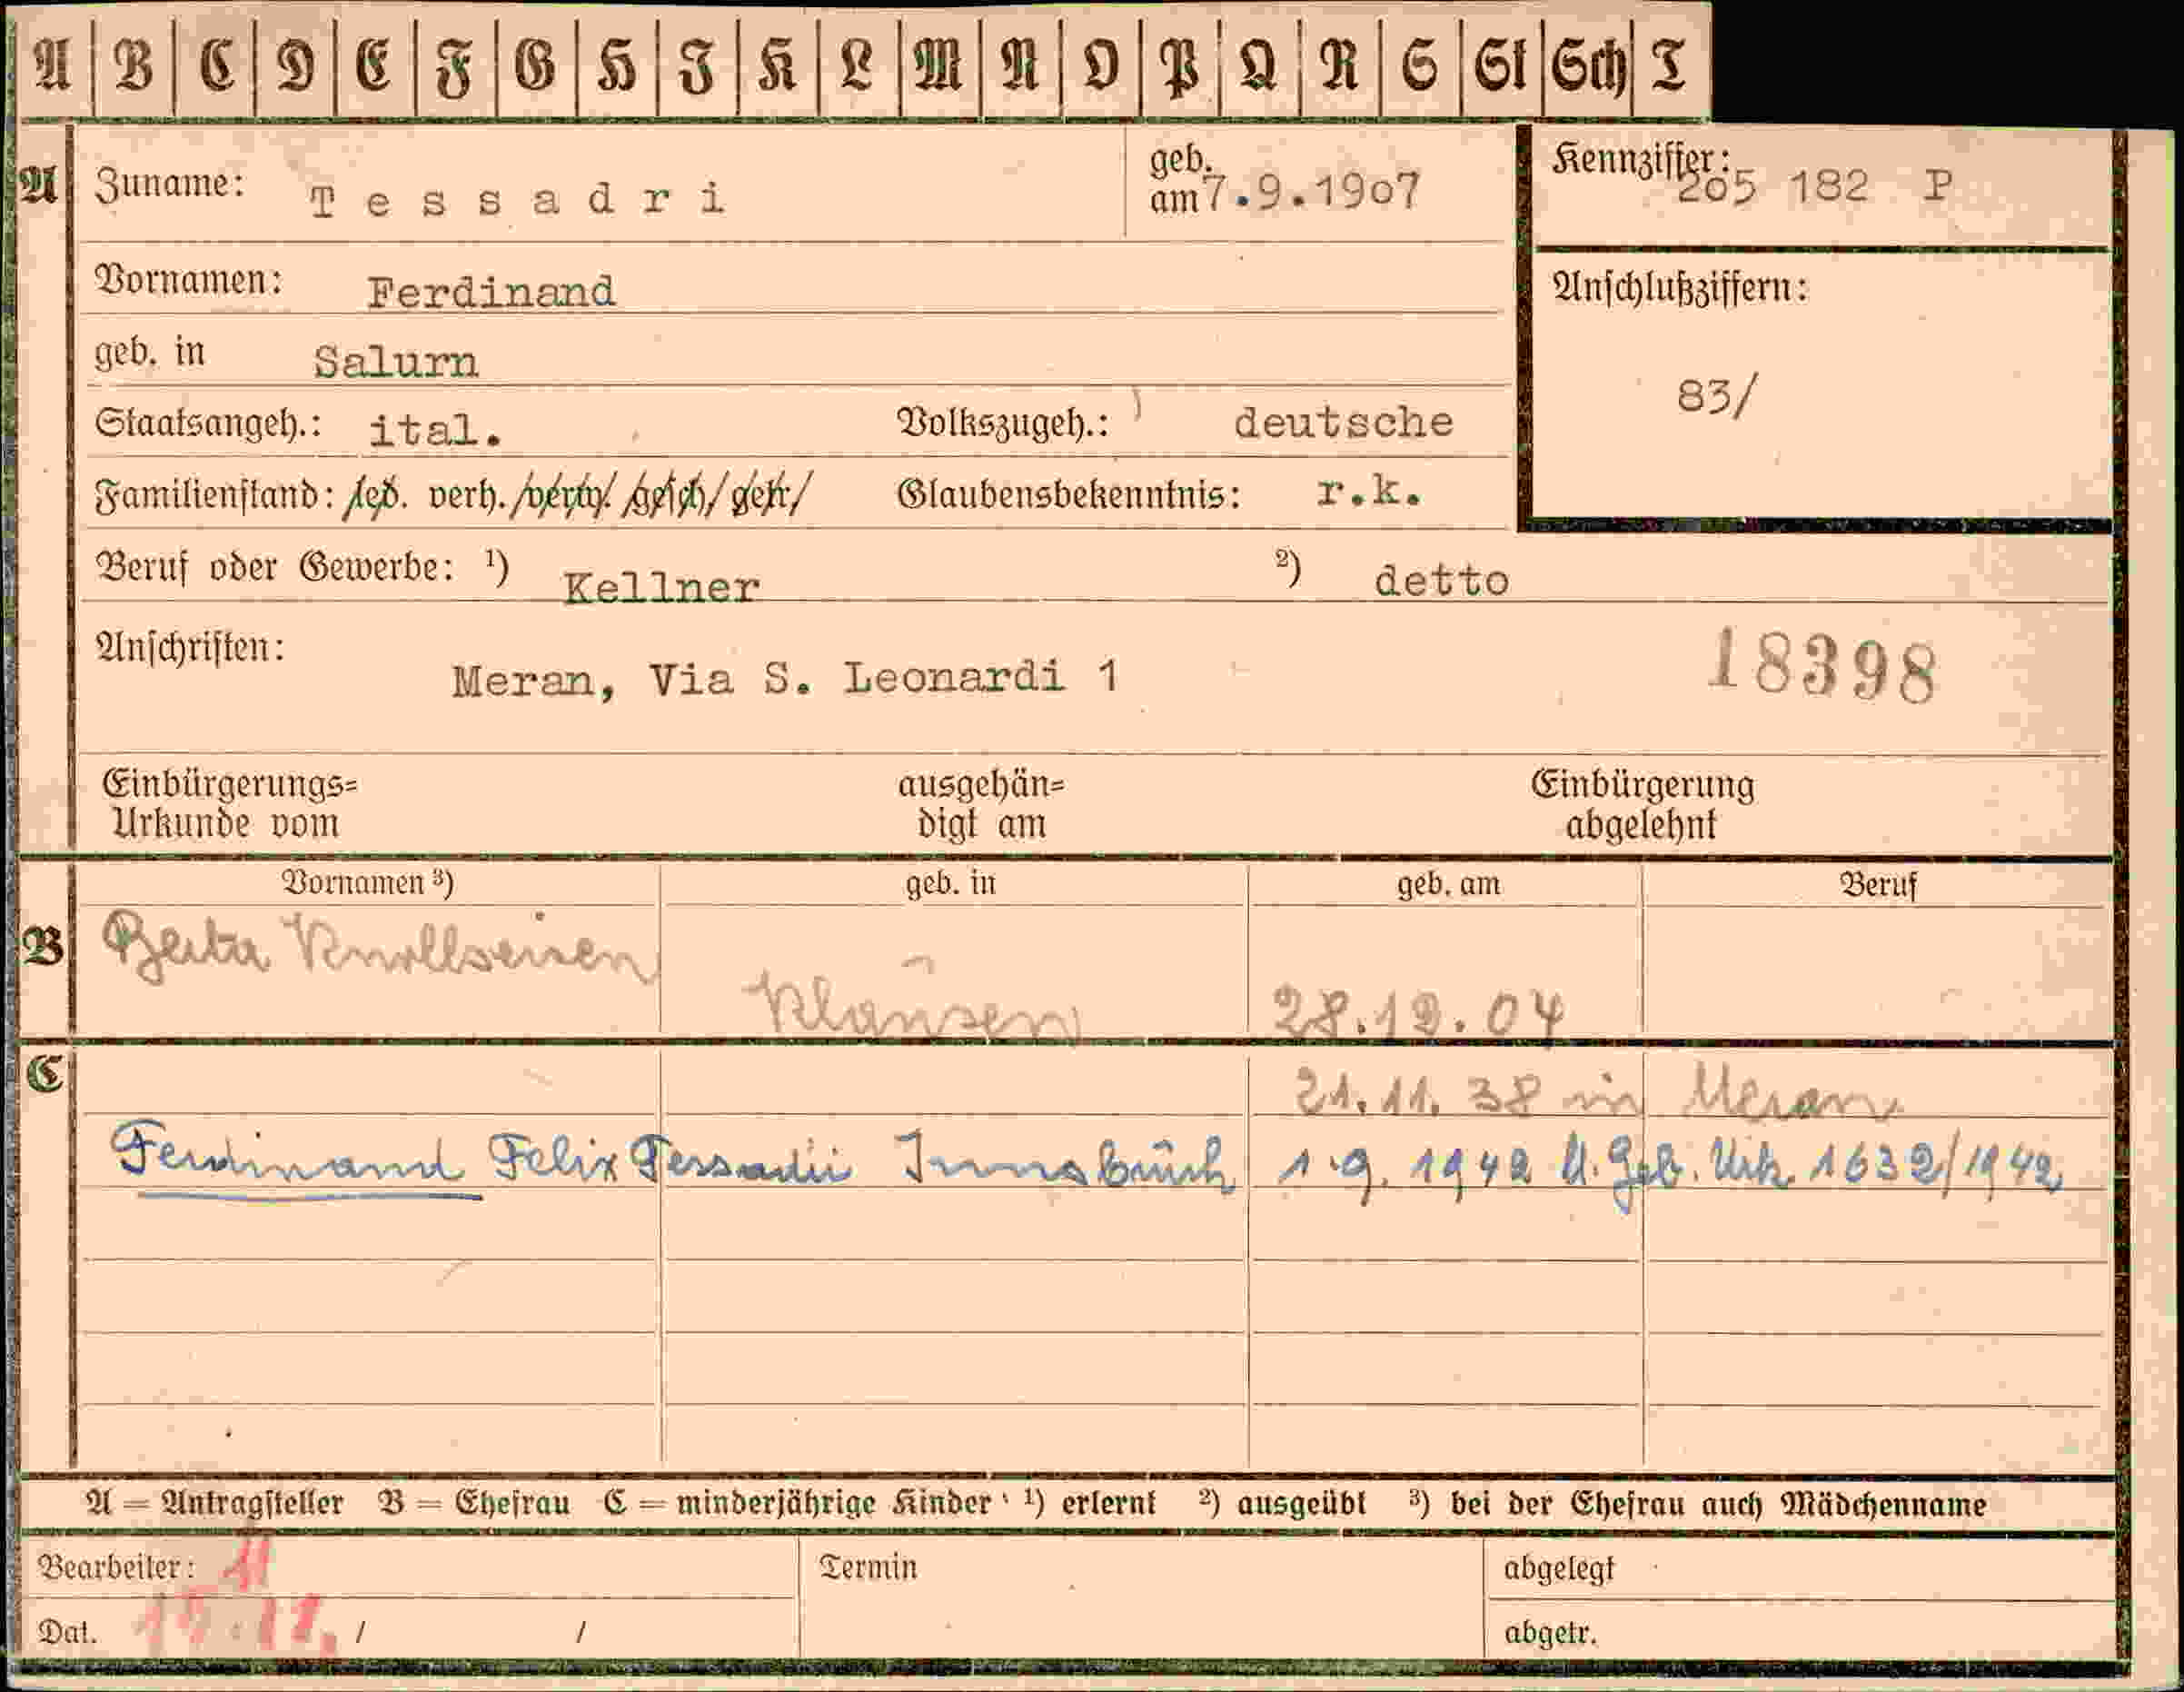 A B C D E F G H I K L M N O P Q R S St Sch T
A Zuname: Tessadri geb. am 7.9.1907 Kennziffer: 205 182 P
Vornamen: Ferdinand
geb. in Salurn Anschlußziffern:
Staatsangeh.: ital. Volkszugeh.: deutsche 83/
Familienstand: led. verh. verw. gesch. getr. Glaubensbekenntnis: r.k.
Beruf oder Gewerbe: ¹) Kellner ²) detto
Anschriften: Meran, Via S. Leonardi 1 18398
Einbürgerungs= ausgehän= Einbürgerung
Urkunde vom digt am abgelehnt
Vornamen ³) geb. in geb. am Beruf
B Berta Knollseisen Klausen 28.12.04
C 21.11.38 in Meran
Ferdinand Felix Tessadri Innsbruck 1.9.1942 lt. Geb. Urk. 1632/1942
A = Antragsteller B = Ehefrau C = minderjährige Kinder ¹) erlernt ²) ausgeübt ³) bei der Ehefrau auch Mädchenname
Bearbeiter: 11 Termin abgelegt
Dat. / / abgetr.